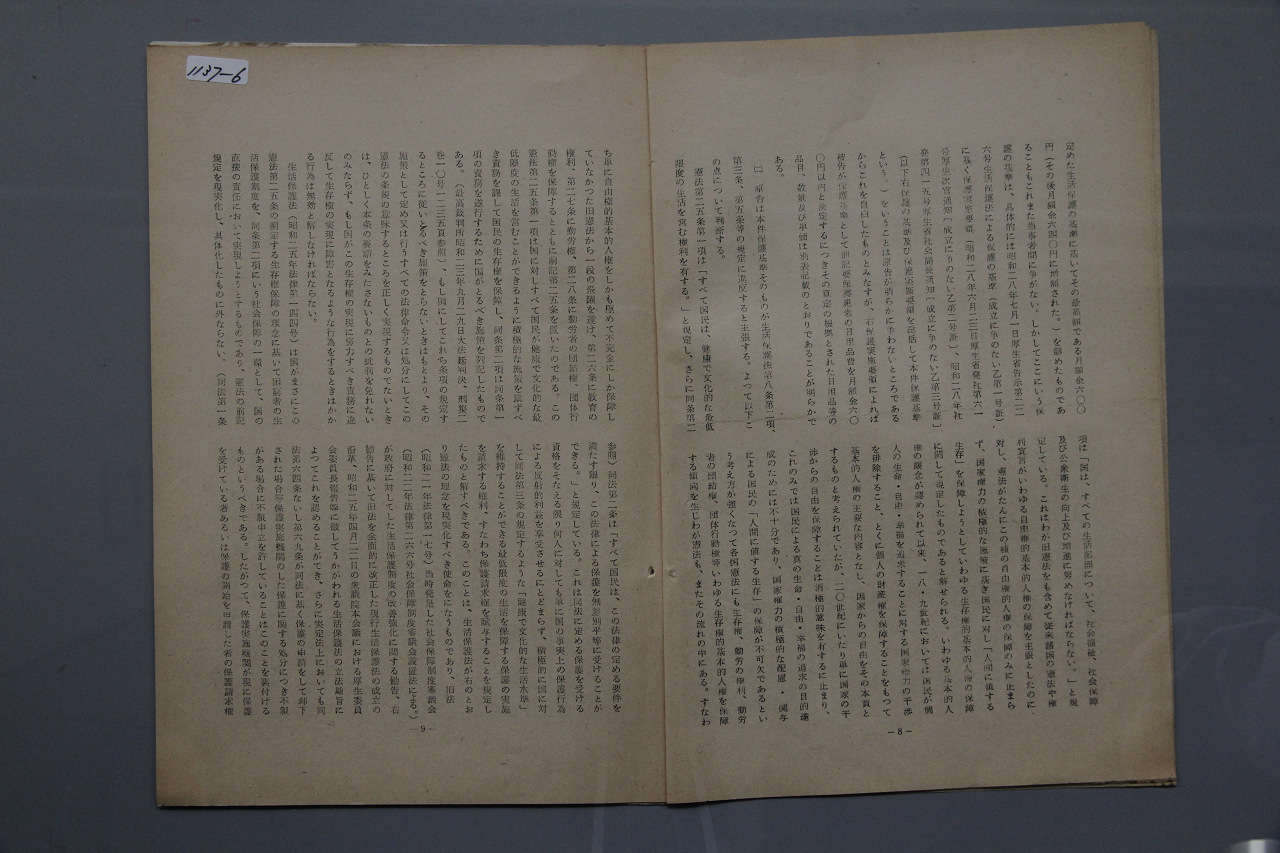 1137-6
定めた生活保護の基準に基いてその最高額である月額金六〇〇
円(その後月額金六四〇円に増額された。)を認めたものであ
ることもこれまた当事者間に争がない。しかしてここにいう保
護の基準は、具体的には昭和二八年七月一日厚生省告示第二二
六号生活保護法による保護の基準(成立に争のない乙第一号証)、
に基く保護実施要領(昭和二八年六月二三日厚生省発社第六一
号厚生次官通知(成立に争のない乙第二号証)、昭和二八年社
発第四一五号厚生省社会局長通知(成立に争のない乙第三号証)
(以下右保護の基準及び保護実施要領を総括して本件保護基準
という。)をいうことは原告が明らかに争わないところである
からこれを自白したものとみなすが、右保護実施要領によれば
被告が保護基準として前記要保護患者の日用品費を月額金六〇
〇円以内と決定するにつきその算定の根拠とされた日用品等の
品目、数量及び単価は別表記載のとおりであることが明らかで
ある。
㈡ 原告は本件保護基準そのものが生活保護法第八条第二項、
第三条、第五条等の規定に違反すると主張する。よつて以下こ
の点について判断する。
憲法第二五条第一項は「すべて国民は、健康で文化的な最低
限度の生活を営む権利を有する。」と規定し、さらに同条第二
項は「国は、すべての生活部面について、社会福祉、社会保障
及び公衆衛生の向上及び増進に努めなければならない。」と規
定している。これはわが旧憲法をも含めて従来諸国の憲法や権
利宣言がいわゆる自由権的基本的人権の保障を主眼としたのに
対し、憲法がたんにこの種の自由権的人権の保障のみに止まら
ず、国家権力の積極的な施策に基き国民に対し「人間に値する
生存」を保障しようとしていわゆる生存権的基本的人権の保障
に関して規定したものであると解せられる。いわゆる基本的人
権の観念が認められて以来、一八・九世紀においては国民が個
人の生命・自由・幸福を追求することに対する国家権力の干渉
を排除すること、とくに個人の財産権を保障することをもつて
基本的人権の主要な内容となし、国家からの自由をその本質と
するものと考えられていたが、二〇世紀にいたり単に国家の干
渉からの自由を保障することは消極的意味を有するに止まり、
これのみでは国民による真の生命・自由・幸福の追求の目的達
成のためには不十分であり、国家権力の積極的な配慮・関与
による国民の「人間に値する生存」の保障が不可欠であるとい
う考え方が強くなつて各国憲法にも生存権、勤労の権利、勤労
者の団結権、団体行動権等いわゆる生存権的基本的人権を保障
する傾向を生じわが憲法も、またその流れの中にある。すなわ
— 8 —
ち単に自由権的基本的人権をしかも極めて不完全にしか保障し
ていなかつた旧憲法から一段の飛躍を遂げ、第二六条に教育の
権利、第二七条に勤労権、第二八条に勤労者の団結権、団体行
動権を保障するとともに前記第二五条を置いたのである。この
憲法第二五条第一項は国に対しすべて国民が健康で文化的な最
低限度の生活を営むことができるように積極的な施策を講ずべ
き責務を課して国民の生存権を保障し、同条第二項は同条第一
項の責務を遂行するために国がとるべき施策を列記したもので
ある。(最高裁判所昭和二三年九月二九日大法廷判決、刑集二
巻一〇号一二三五頁参照)、もし国にしてこれら条項の規定す
るところに従いとるべき施策をとらないときはもとより、その
施策として定め又は行うすべての法律命令又は処分にしてこの
憲法の条規の意味するところを正しく実現するものでないとき
は、ひとしく本条の要請をみたさないものとの批判を免れない
のみならず、もし国がこの生存権の実現に努力すべき責務に違
反して生存権の実現に障害となるような行為をするときはかか
る行為は無効と解しなければならない。
生活保護法(昭和二五年法律第一四四号)は国がまさにこの
憲法第二五条の明定する生存権保障の理念に基いて困窮者の生
活保護制度を、同条第二項にいう社会保障の一環として、国の
直接の責任において実現しようとするものであり、憲法の前記
規定を現実化し、具体化したものに外ならない。(同法第一条
参照)同法第二条は「すべて国民は、この法律の定める要件を
満たす限り、この法律による保護を無差別平等に受けることが
できる。」と規定している。これは同法に定める保護を受ける
資格をそなえる限り何人に対しても単に国の事実上の保護行為
による反射的利益を享受させるにとどまらず、積極的に国に対
して同法第三条の規定するような「健康で文化的な生活水準」
を維持することができる最低限度の生活を保障する保護の実施
を請求する権利、すなわち保護請求権を賦与することを規定し
たものと解すべきである。このことは、生活保護法が右のとお
り憲法の理念を現実化すべき使命をになうものであり、旧法
(昭和二一年法律第一七号)当時発足した社会保障制度審議会
(昭和二三年法律第二六六号社会保障制度審議会設置法による。)
が政府に対してした生活保護制度の改善強化に関する勧告、右
勧告に基いて旧法を全面的に改正した現行生活保護法の成立の
沿革、昭和二五年四月二二日の衆議院本会議における厚生委員
会委員長報告等に徴してうかがわれる生活保護法の立法趣旨に
よつてこれを認めることができ、さらに実定法上においても同
法第六四条ないし第六九条が同法に基く保護の申請をして却下
された場合等保護実施機関のした保護に関する処分につき不服
がある場合に不服申立を許していることはこのことを裏付ける
ものというべきである。したがつて、保護実施機関が現に保護
を受けている者あるいは保護の開始を申請した者の保護請求権
— 9 —